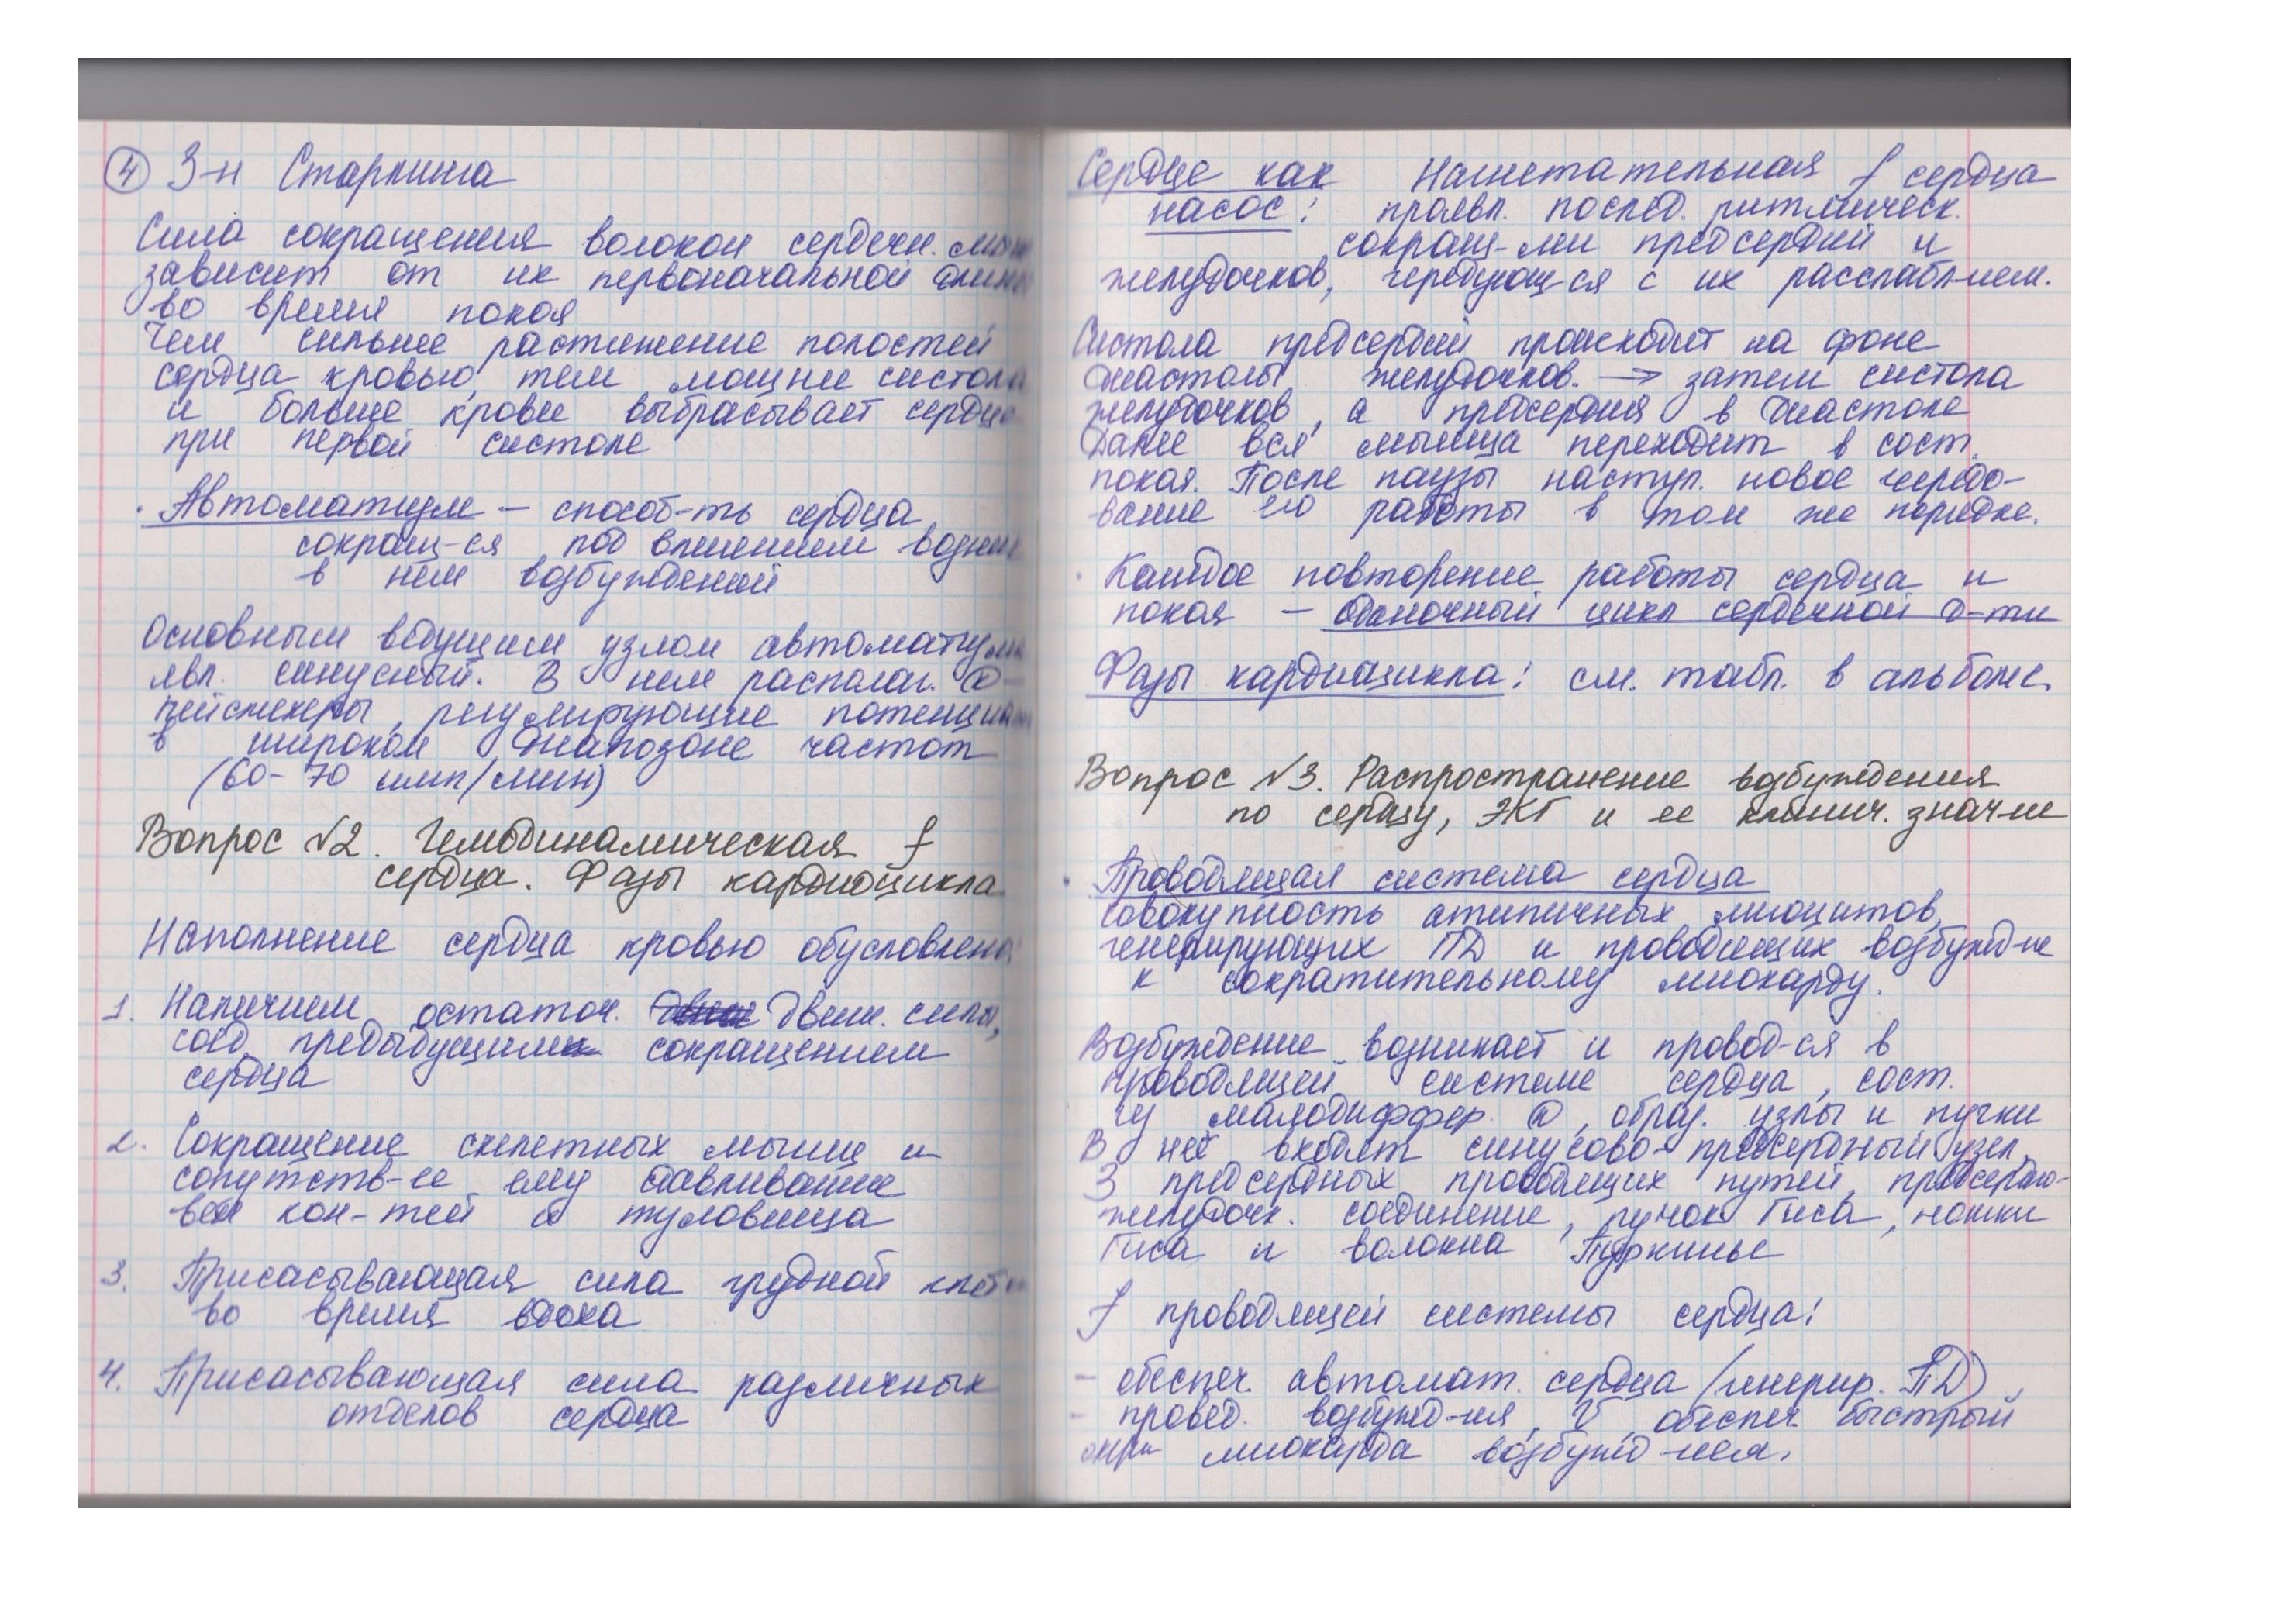 ④ З-н Старлинга
Сила сокращения волокон сердечн.
зависит от их первоначальной длины
во время покоя
Чем сильнее растяжение полостей
сердца кровью, тем мощнее систола
и больше крови выбрасывает сердце
при первой систоле
· Автоматизм – способ-ть сердца
сокращ-ся под влиянием
в нем возбуждений
Основным ведущим узлом автоматизма
явл. синусный. В нем располаг.
пейсмекеры, регулирующие
в широком диапозоне частот
(60-70 имп/мин)
Вопрос №2. Гемодинамическая f
сердца. Фазы кардиоцикла
Наполнение сердца кровью обусловлено:
1. Наличием остаточ. движ. силы,
созд. предыдущим сокращением
сердца
2. Сокращение скелетных мышц и
сопутств-ее ему сдавливание
вен кон-тей и туловища
3. Присасывающая сила грудной
во время вдоха
4. Присасывающая сила различных
отделов сердца
Сердце как Нагнетательная f сердца
насос: проявл. послед. ритмическ.
сокращ-ми предсердий и
желудочков, чередующ-ся с их расслабл-ием.
Систола предсердий происходит на фоне
диастолы желудочков. → затем систола
желудочков, а предсердия в диастоле
Далее вся мышца переходит в сост.
покоя. После паузы наступ. новое чередо-
вание его работы в том же порядке.
· Каждое повторение работы сердца и
покоя – одиночный цикл сердечной д-ти
Фазы кардиоцикла: см. табл. в альбоме.
Вопрос №3. Распространение возбуждения
по сердцу, ЭКГ и ее клинич. знач-ие
· Проводящая система сердца
совокупность атипичных миоцитов,
генерирующих ПД и проводящих возбужд-ие
к сократительному миокарду.
Возбуждение возникает и провод-ся в
проводящей системе сердца, сост.
из малодиффер. , образ. узлы и пучки
В неё входят синусово-предсердный узел,
3 предсердных проводящих путей, предсердно-
желудочк. соединение, пучок Гиса, ножки
Гиса и волокна Пуркинье
f проводящей системы сердца:
- обеспеч. автомат. сердца (генерир. ПД)
- провед. возбужд-ия, обеспеч. быстрый
миокарда возбужд-ием.